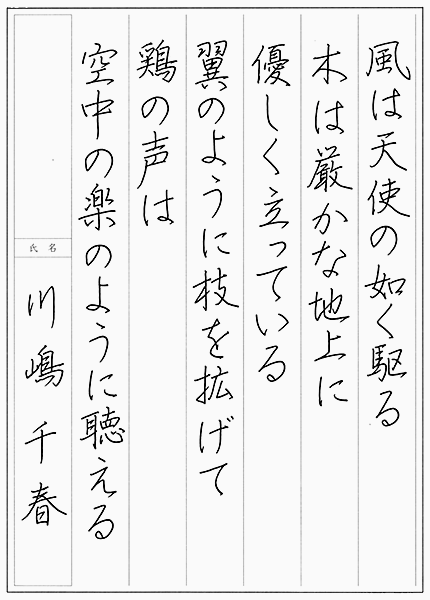 風は天使の如く駆る
木は厳かな地上に
優しく立っている
翼のように枝を拡げて
鶏の声は
空中の楽のように聴える
氏名
川嶋千春